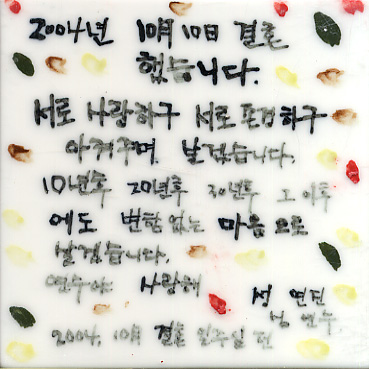 2004년 10月 10日 결혼
했습니다.
서로 사랑하구 서로 존경하구
아껴주며 살겠습니다.
10년후 20년후 30년후 그 이후
에도 변함 없는 마음으로
살겠습니다.
연수야 사랑해
성 연
2004. 10月 결혼 일주일 전